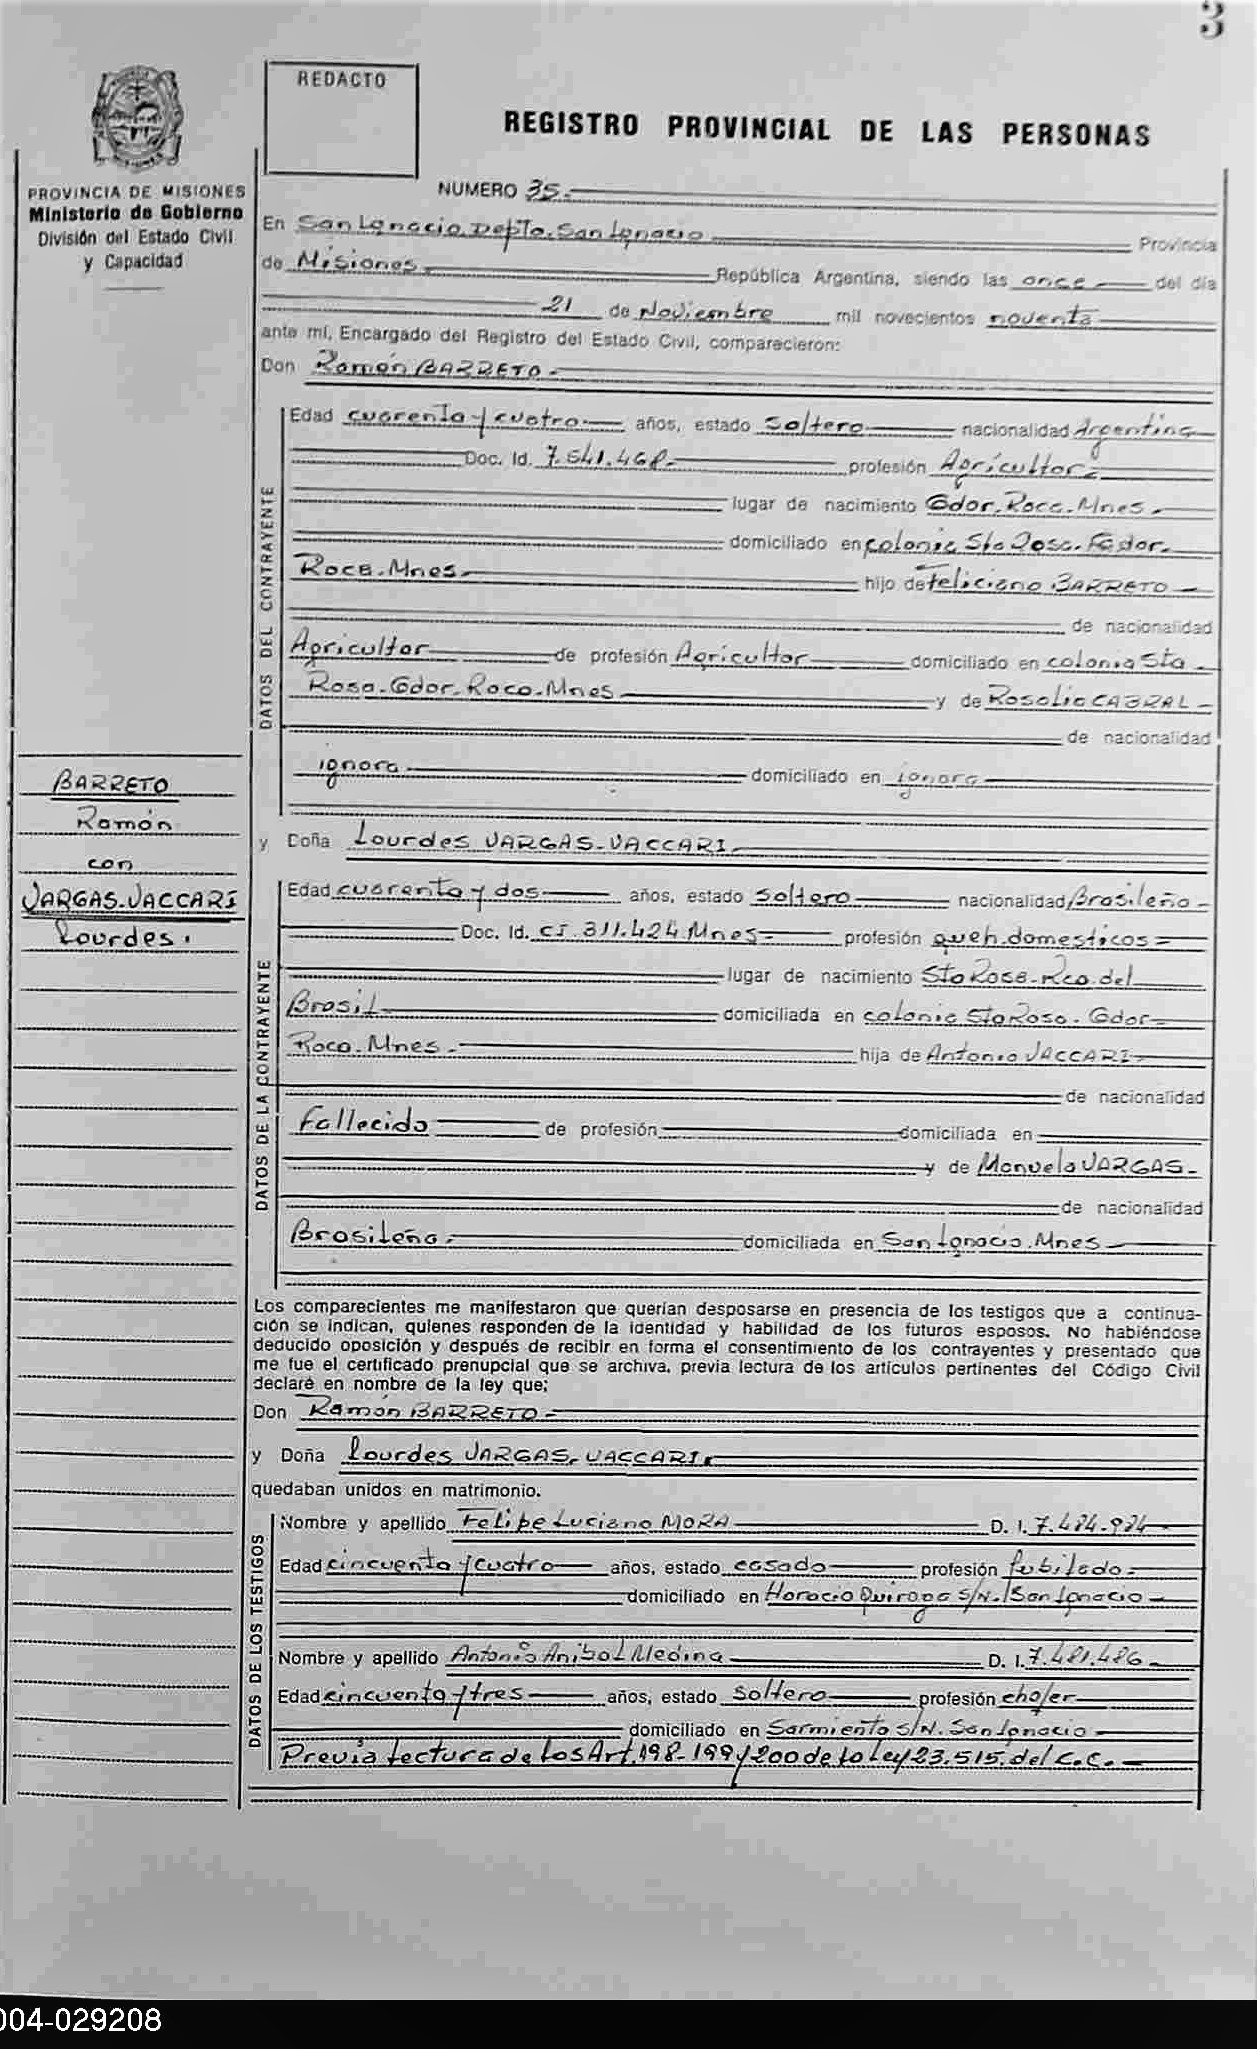 3
REDACTO
REGISTRO PROVINCIAL DE LAS PERSONAS
PROVINCIA DE MISIONES
Ministerio de Gobierno
División del Estado Civil
y Capacidad
NUMERO 35.-
En San Ignacio, Depto. San Ignacio Provincia
de Misiones República Argentina, siendo las once del día
21 de Noviembre mil novecientos noventa
ante mí, Encargado del Registro del Estado Civil, comparecieron:
Don Ramón BARRETO.-
DATOS DEL CONTRAYENTE
Edad cuarenta y cuatro años, estado Soltero nacionalidad Argentina
Doc. Id. 7.541.468.- profesión Agricultor
lugar de nacimiento Gdor. Roca. Mnes.-
domiciliado en colonia Sta Rosa.
Roca. Mnes. hijo de Feliciano BARRETO
de nacionalidad
Agricultor de profesión Agricultor domiciliado en colonia Sta
Rosa. Gdor. Roca. Mnes y de Rosalia CABRAL
de nacionalidad
ignora domiciliado en ignora
BARRETO
Ramón
con
VARGAS-VACCARI
Lourdes.
y Doña Lourdes VARGAS-VACCARI.
DATOS DE LA CONTRAYENTE
Edad cuarenta y dos años, estado soltera nacionalidad Brasileña
Doc. Id. CI. 311.424 Mnes profesión queh. domesticos
lugar de nacimiento Sta Rosa. Rca. del
Brasil domiciliada en colonia Sta Rosa. Gdor
Roca. Mnes. hija de Antonio VACCARI
de nacionalidad
Fallecido de profesión domiciliada en
y de Manuela VARGAS.
de nacionalidad
Brasileña. domiciliada en San Ignacio. Mnes
Los comparecientes me manifestaron que querían desposarse en presencia de los testigos que a continua-
ción se indican, quienes responden de la identidad y habilidad de los futuros esposos. No habiéndose
deducido oposición y después de recibir en forma el consentimiento de los contrayentes y presentado que
me fue el certificado prenupcial que se archiva, previa lectura de los artículos pertinentes del Código Civil
declaré en nombre de la ley que;
Don Ramón BARRETO.-
y Doña Lourdes VARGAS-VACCARI.
quedaban unidos en matrimonio.
DATOS DE LOS TESTIGOS
Nombre y apellido Felipe Luciano MORA D. I. 7.484.984
Edad cincuenta y cuatro años, estado casado profesión Jubilado.
domiciliado en Horacio Quiroga S/N. San Ignacio
Nombre y apellido Antonio Anibal Medina D. I. 7.481.486
Edad cincuenta y tres años, estado Soltero profesión chofer
domiciliado en Sarmiento S/N. San Ignacio
Previa lectura de los Art. 198-199 y 200 de la Ley 23.515. del C.C.
004-029208